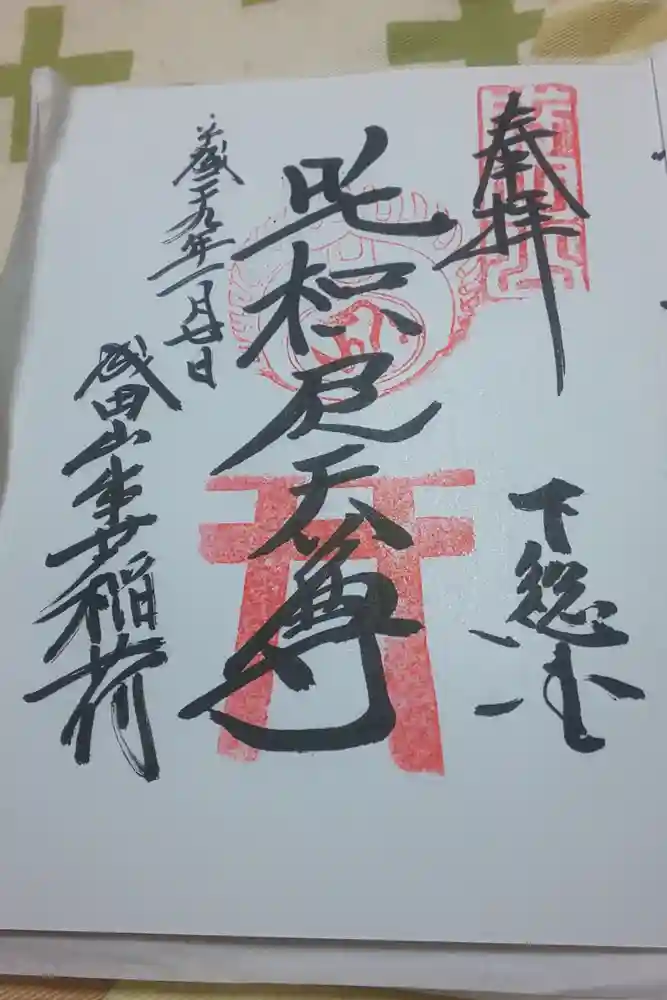 奉拝
下総国
吒枳尼天尊
平成二十九年一月廿日
成田山出世稲荷